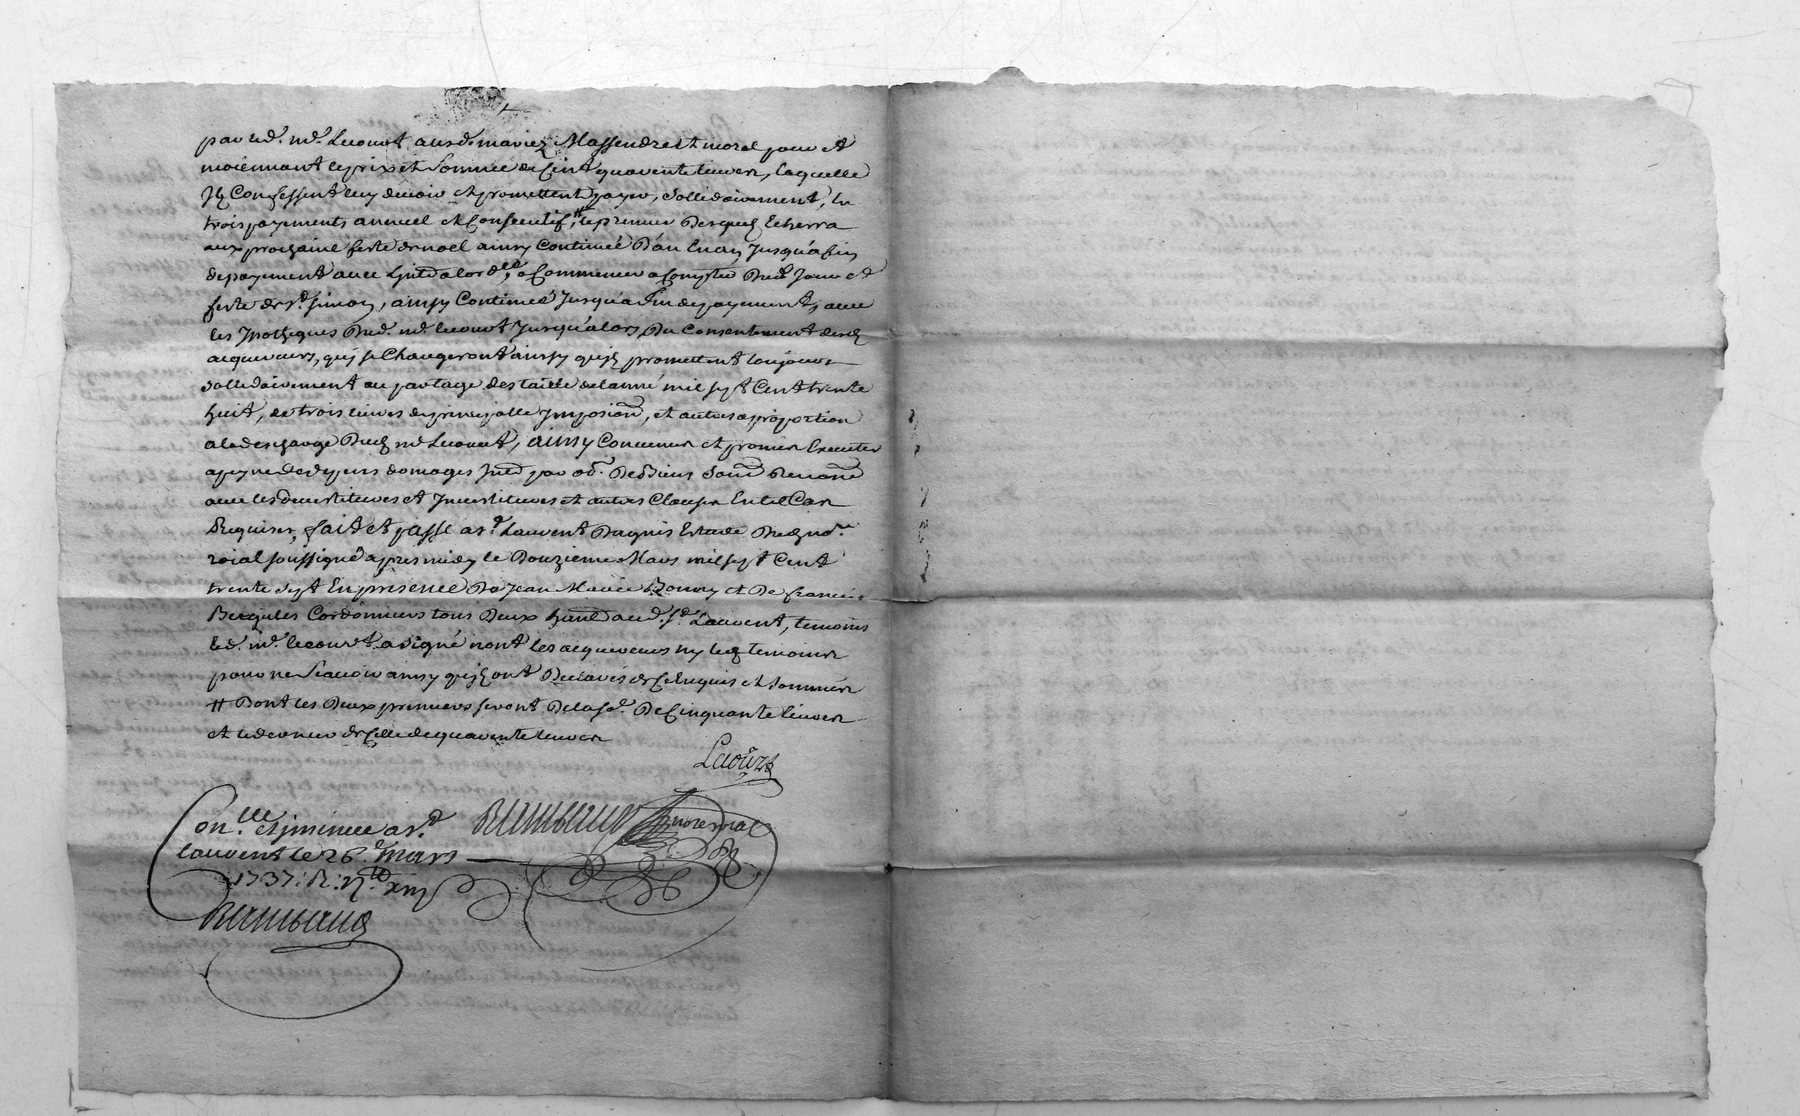 par led. md. Lecourt ausd. mariez Massendres et morel pour et
moiennant le prix et somme de Cent quarente livres, laquelle
Ilz Confessent luy devoir et promettent payer, sollidairement, En
trois payements annuel et Consecutif, # le premier Desquelz Echerra
aux prochaine feste de noel ainsy Continué D'an En an Jusqu'a fin
de payement avec Intd alord. a Commencer a Compter Dud. Jour et
feste de St. simon, ainsy Continué Jusqu'a fin de payement, avec
les Ipotheques Dud. md. lecourt Jusqu'alors, Du Consentement desd.
acquereurs, quy se Chargeront ainsy qu'ilz promettent toujours
sollidairement au partage des taille de lanné mil sept Cent trente
huit, de trois livres de principalle Imposion, et autres a proportion
a la descharge Dud. md. Lecourt, ainsy Convenu et promis Executer
a peyne de depens domages Intd par obon. De Biens soumon Renonon
avec les devestitures et Investitures et autres Clauses En tel Cas
Requises, fait et passé a St. Laurent Dagnis Estude Dud. nore.
roial soussigné apres midy le Douzieme Mars mil sept Cent
trente sept En presence De Jean Marie Bonny et De francois
Cordonniers tous Deux habitd aud. St. Laurent, temoins
led. md. lecourt a signé nont les acquereurs ny lesd. temoins
pour ne sçavoir ainsy qu'ilz ont Declarés de Ce Enquis et sommés
# Dont les Deux premiers seront De la se. De Cinquante livres
et le dernier de Celle de quarente livres
Lecourt
Con.lle et insinué a St.
laurent le 26e. mars
1737: R:
nore roial